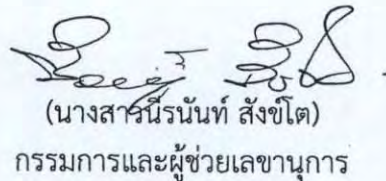 (นางสาวนีรนันท์ สังข์โต)
กรรมการและผู้ช่วยเลขานุการ